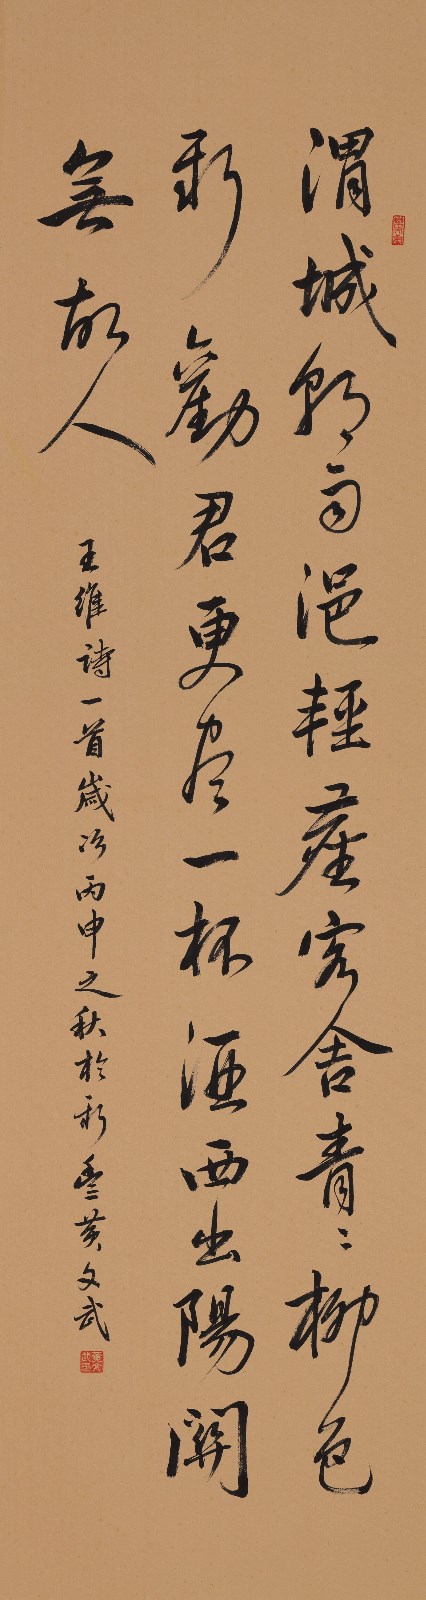 渭城朝雨浥輕塵客舍青〻柳色
新勸君更尽一杯酒西出陽關
無故人
王維詩一首歲次丙申之秋於新豐黃文武